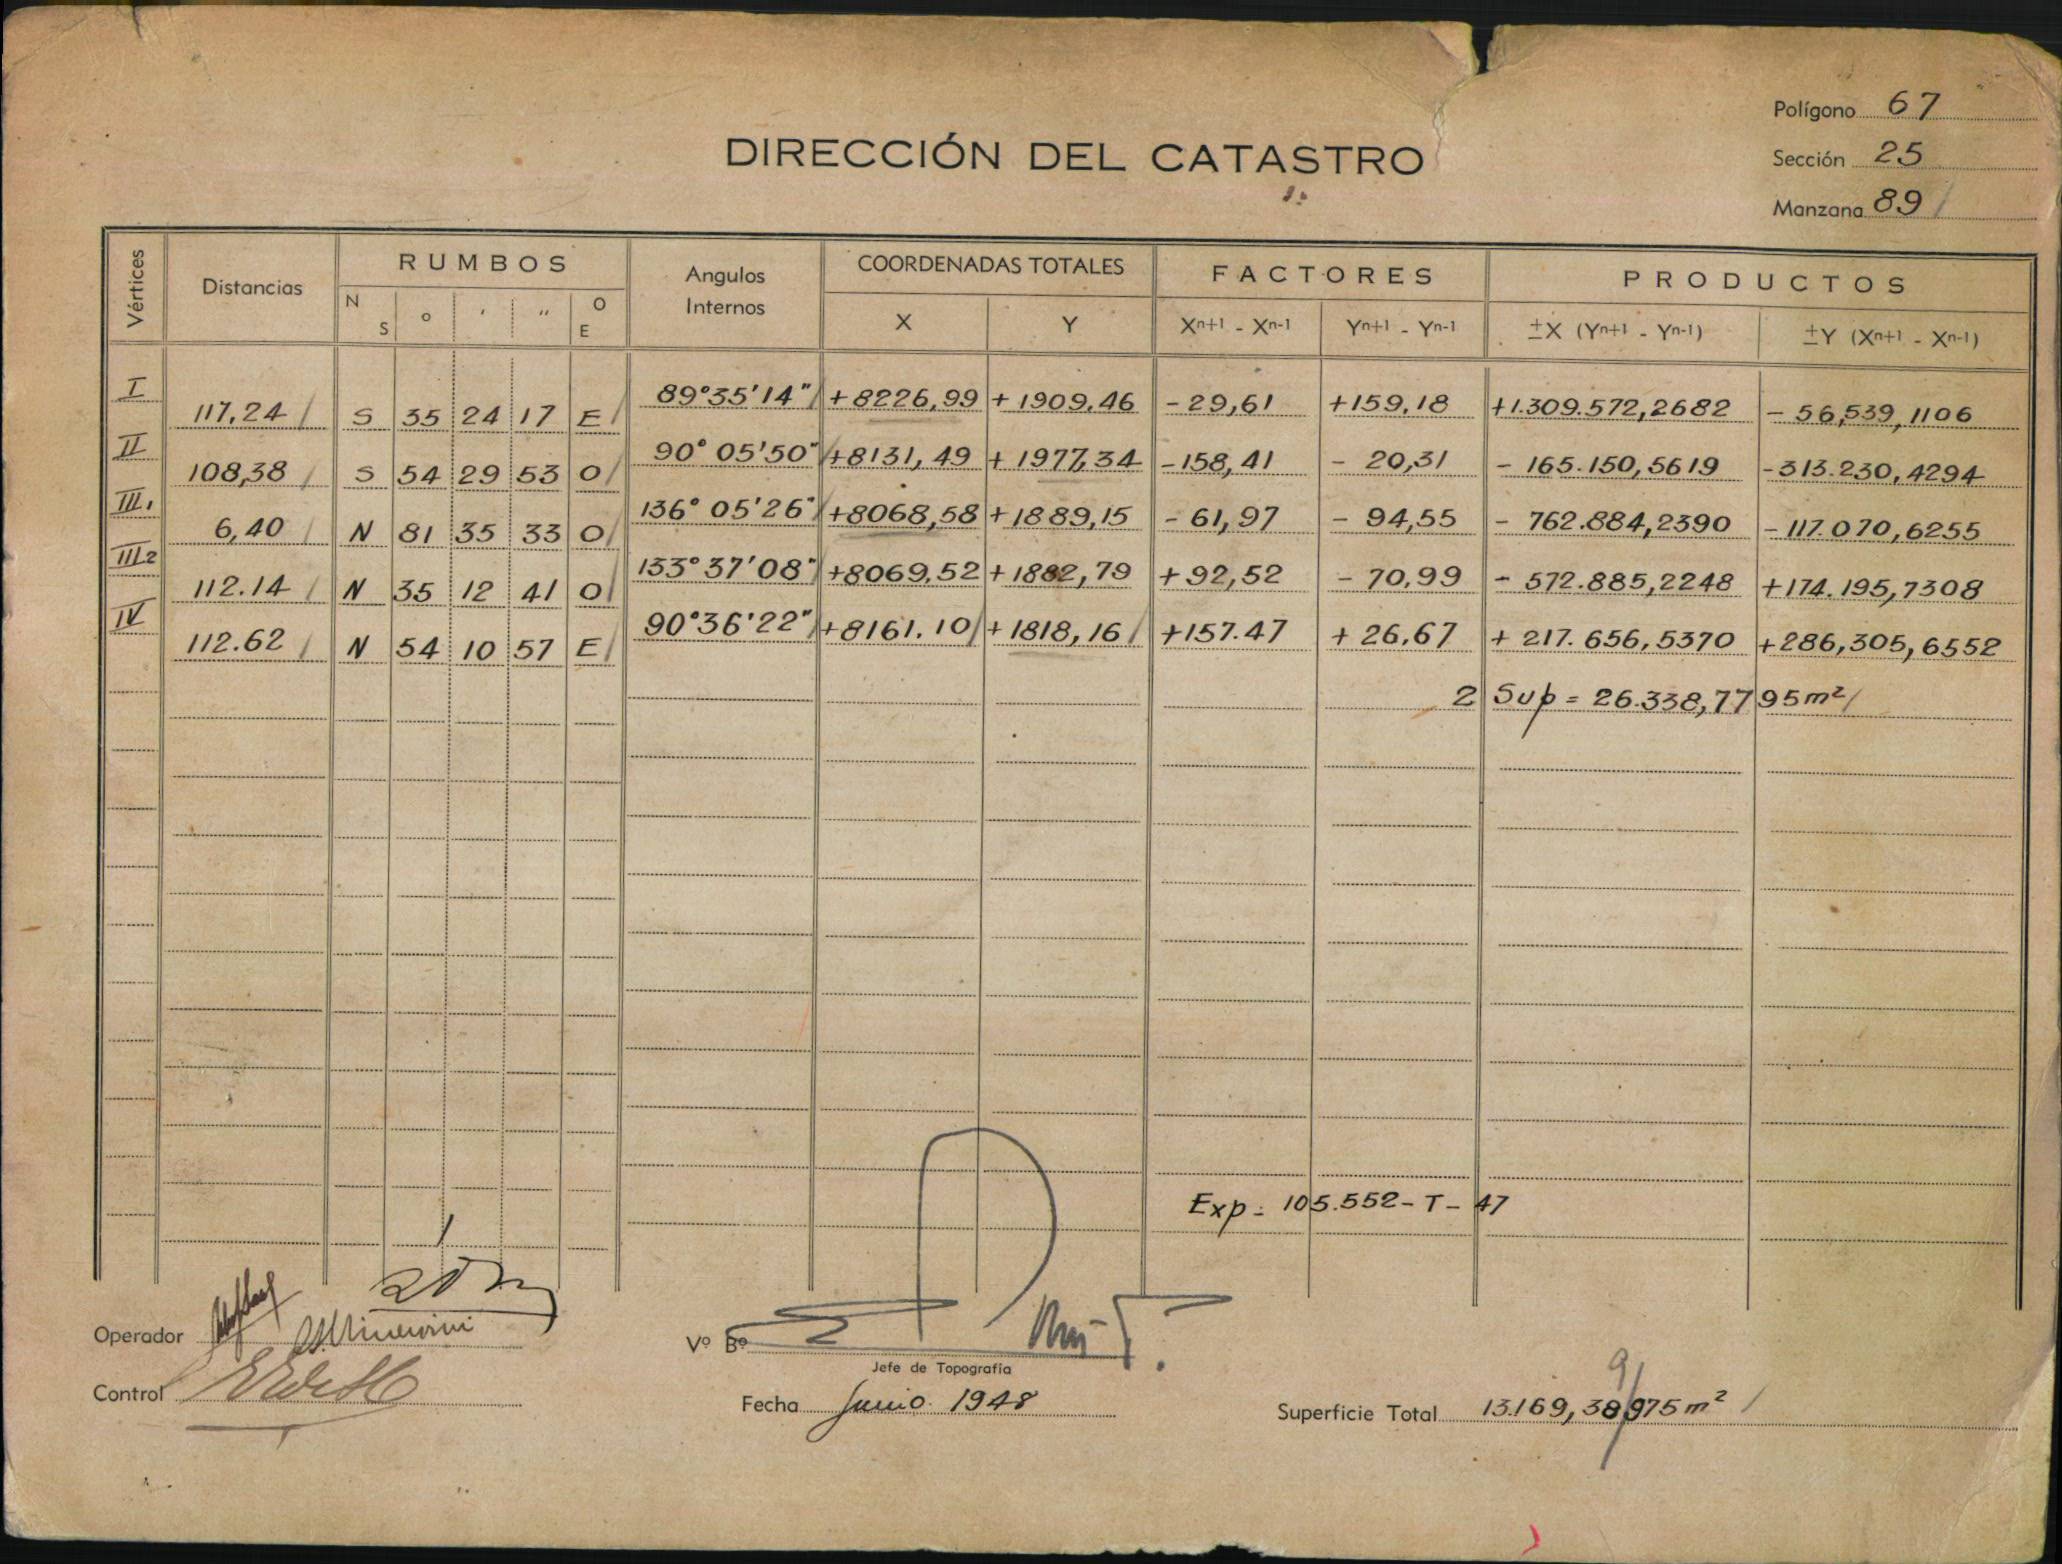 Polígono 67
DIRECCIÓN DEL CATASTRO
Sección 25
Manzana 89
Vértices Distancias RUMBOS Angulos Internos COORDENADAS TOTALES FACTORES PRODUCTOS
N S ° ' '' O E X Y Xn+1 - Xn-1 Yn+1 - Yn-1 ±X (Yn+1 - Yn-1) ±Y (Xn+1 - Xn-1)
I 117,24 S 35 24 17 E 89°35'14" +8226,99 +1909,46 -29,61 +159,18 +1.309.572,2682 -56,539,1106
II 108,38 S 54 29 53 O 90°05'50" +8131,49 +1977,34 -158,41 -20,31 -165.150,5619 -313.230,4294
III1 6,40 N 81 35 33 O 136°05'26" +8068,58 +1889,15 -61,97 -94,55 -762.884,2390 -117.070,6255
III2 112.14 N 35 12 41 O 133°37'08" +8069,52 +1882,79 +92,52 -70,99 -572.885,2248 +174.195,7308
IV 112.62 N 54 10 57 E 90°36'22" +8161.10 +1818,16 +157.47 +26,67 +217.656,5370 +286,305,6552
2 Sup = 26.338,7795 m²
Exp = 105.552-T-47
Operador
Vº Bº
Jefe de Topografía
Control
Fecha Junio 1948
9
Superficie Total 13.169,38975 m²